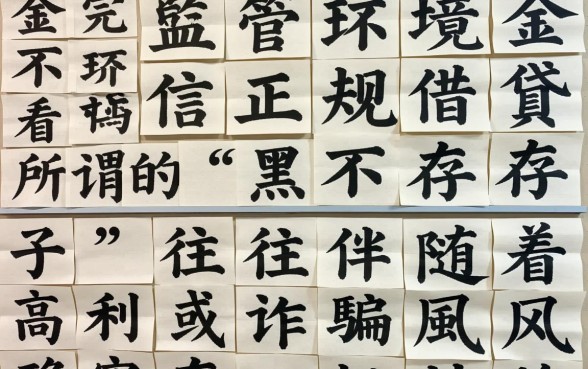 金完監管环境金
不环信正规借貸
看
所谓的“黑不存存
子”往往伴随着
高利或诈騙風风